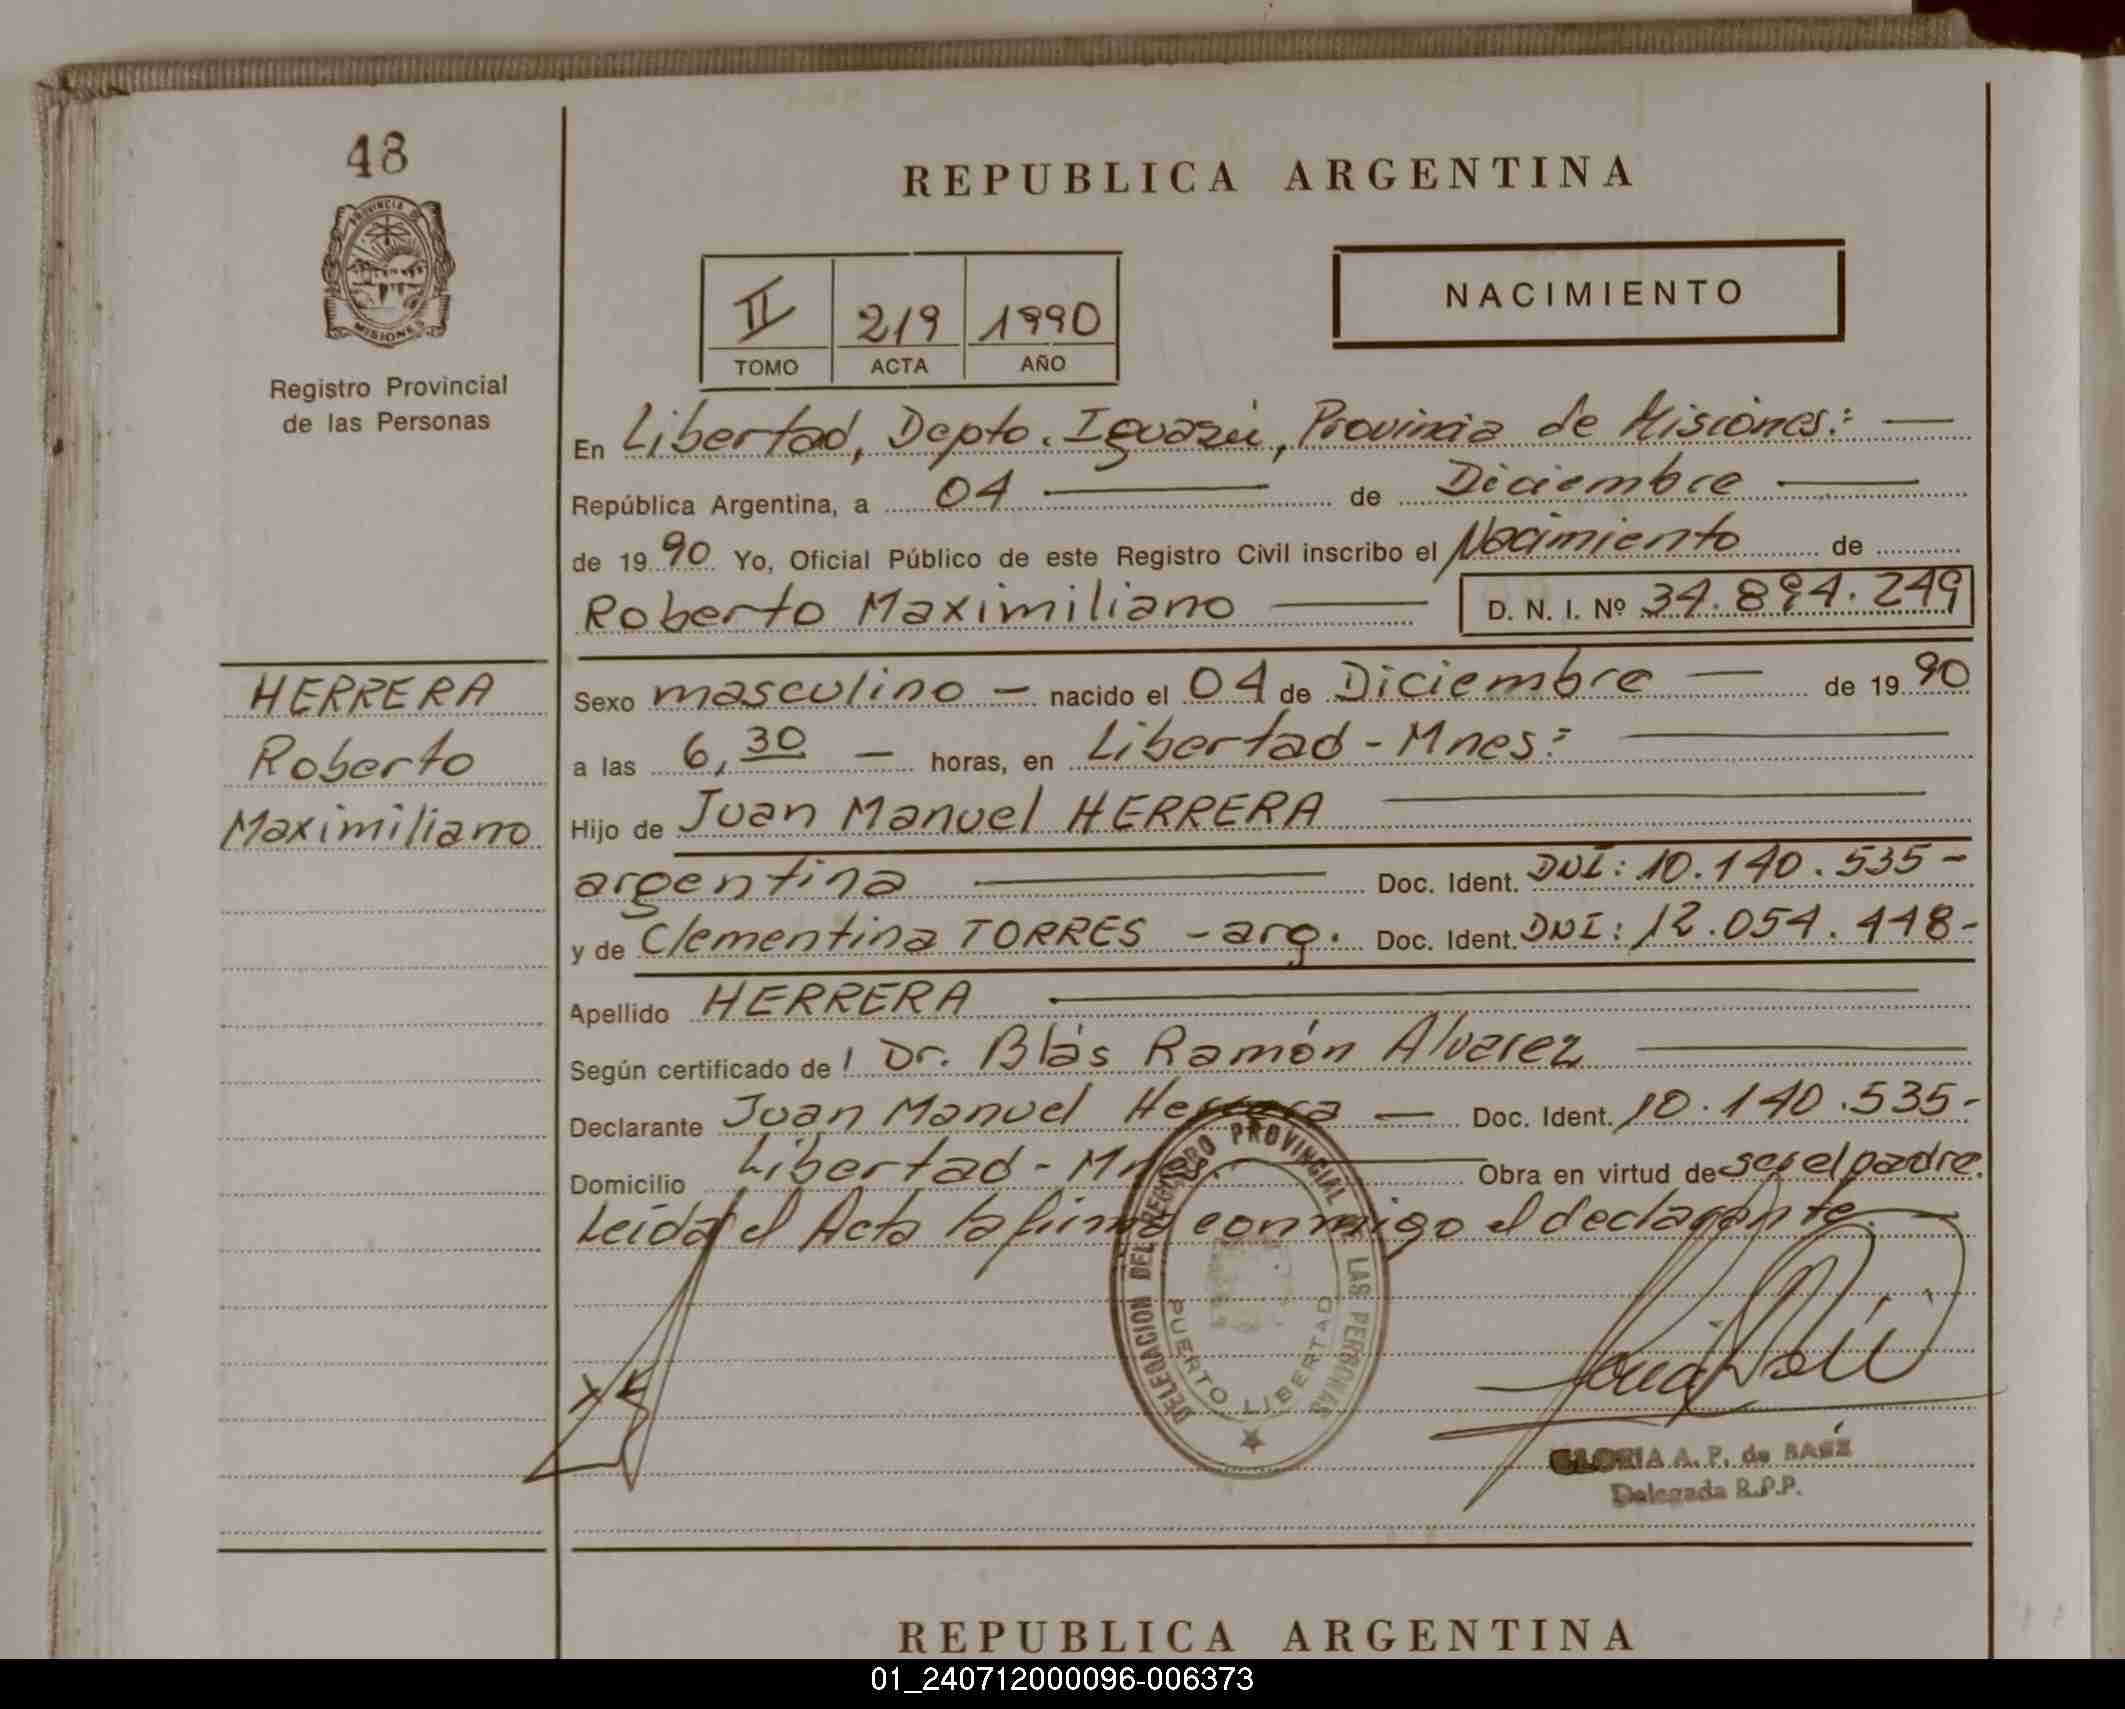 48
PROVINCIA DE
MISIONES
Registro Provincial
de las Personas
REPUBLICA ARGENTINA
II 219 1990
TOMO ACTA AÑO
NACIMIENTO
En Libertad, Depto. Iguazú, Provincia de Misiones:
República Argentina, a 04 de Diciembre
de 1990 Yo, Oficial Público de este Registro Civil inscribo el Nacimiento de
Roberto Maximiliano D. N. I. Nº 34.894.249
HERRERA
Roberto
Maximiliano
Sexo masculino - nacido el 04 de Diciembre - de 1990
a las 6,30 - horas, en Libertad - Mnes:
Hijo de Juan Manuel HERRERA
argentina Doc. Ident. DNI: 10.140.535-
y de Clementina TORRES - arg. Doc. Ident. DNI: 12.054.448-
Apellido HERRERA
Según certificado de Dr. Blás Ramón Alvarez
Declarante Juan Manuel Herrera - Doc. Ident. 10.140.535-
Domicilio Libertad - Mnes Obra en virtud de ser el padre.
Leída el Acta la firma conmigo el declarante.
DELEGACION DEL REGISTRO PROVINCIAL DE LAS PERSONAS
PUERTO LIBERTAD
GLORIA A. P. de BAEZ
Delegada R.P.P.
REPUBLICA ARGENTINA
01_240712000096-006373